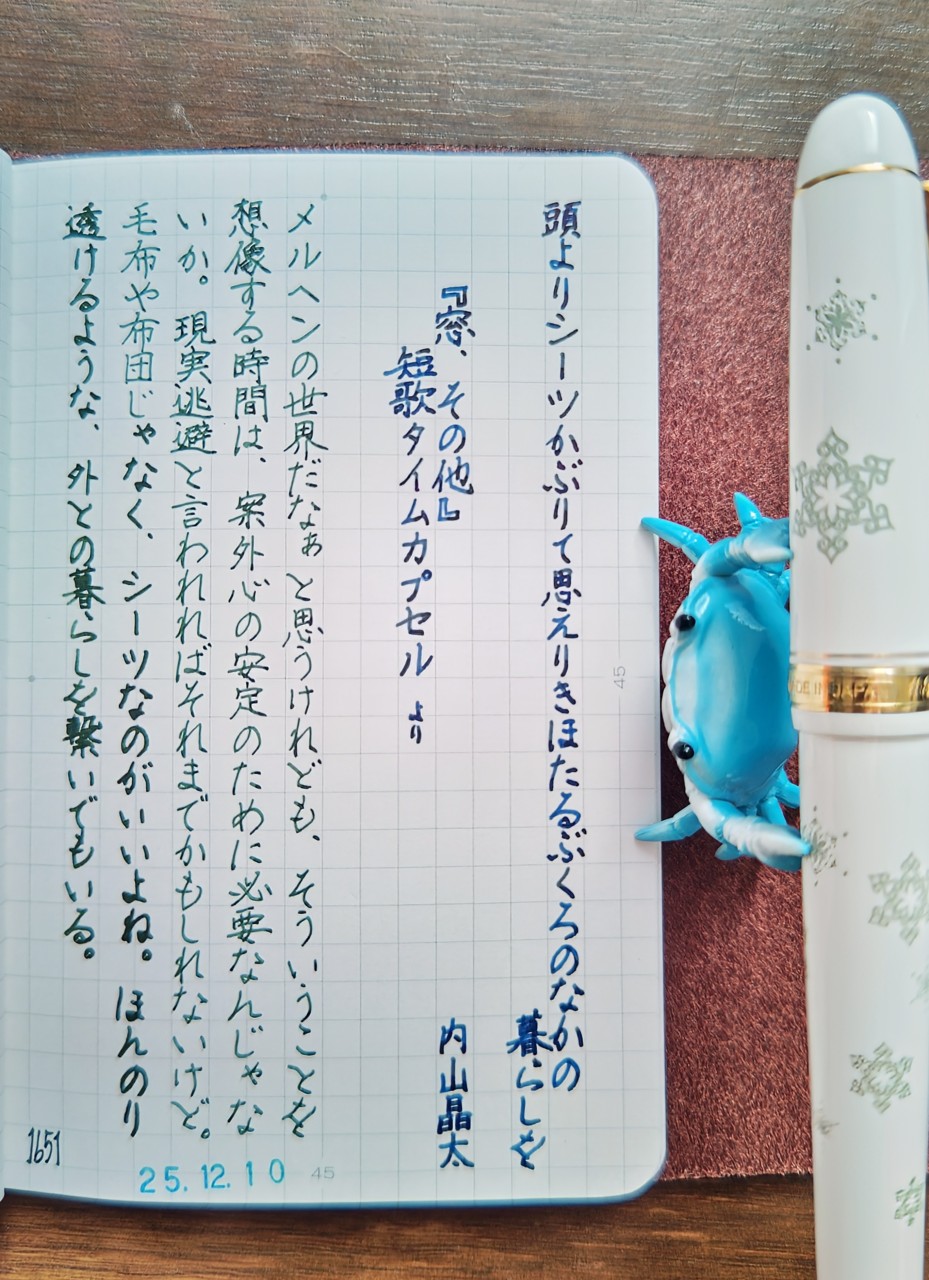 頭よりシーツかぶりて思えりきほたるぶくろのなかの
暮らしを
内山晶太
『窓、その他』
短歌タイムカプセル より
メルヘンの世界だなぁと思うけれども、そういうことを
想像する時間は、案外心の安定のために必要なんじゃな
いか。現実逃避と言われればそれまでかもしれないけど。
毛布や布団じゃなく、シーツなのがいいよね。ほんのり
透けるような、外との暮らしを繋いでもいる。
1651
25.12.10
45
45